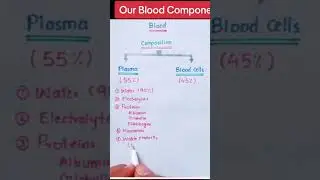 Our Blood Compone
Blood
Composition
Plasma
(55%)
Blood Cells
(45%)
① Water (90%)
② Electrolytes
③ Proteins
Albumin
Globulin
Fibrinogen
④ Hormones
⑤ Waste Products
Plasma
(55%)
① Water (90
② Electrolyt
③ Proteins
Albumi
Glob
Blood Cells
(45%)